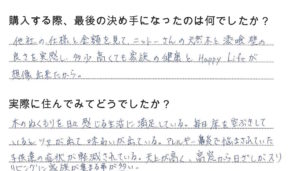 購入する際、最後の決め手になったのは何でしたか？
他社の仕様と金額を見て、ニットーさんの天然木と漆喰壁の
良さを実感し、多少高くても家族の健康と Happy Lifeが
想像出来たから。
実際に住んでみてどうでしたか？
木のぬくもりを日々感じる生活に満足している。毎日床を空ぶきして
いるとツヤが出て味わいが出ている。アレルギー鼻炎で悩まされていた
子供達の症状が軽減されている。天井が高く、高窓から日ざしが入り
リビングに家族が集まる事が多い。